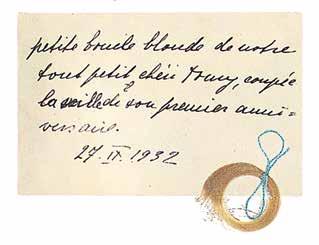 petite boucle blonde de notre
tout petit chéri Tomy, coupée
la veille de son premier anni=
versaire.
27. IX. 1932